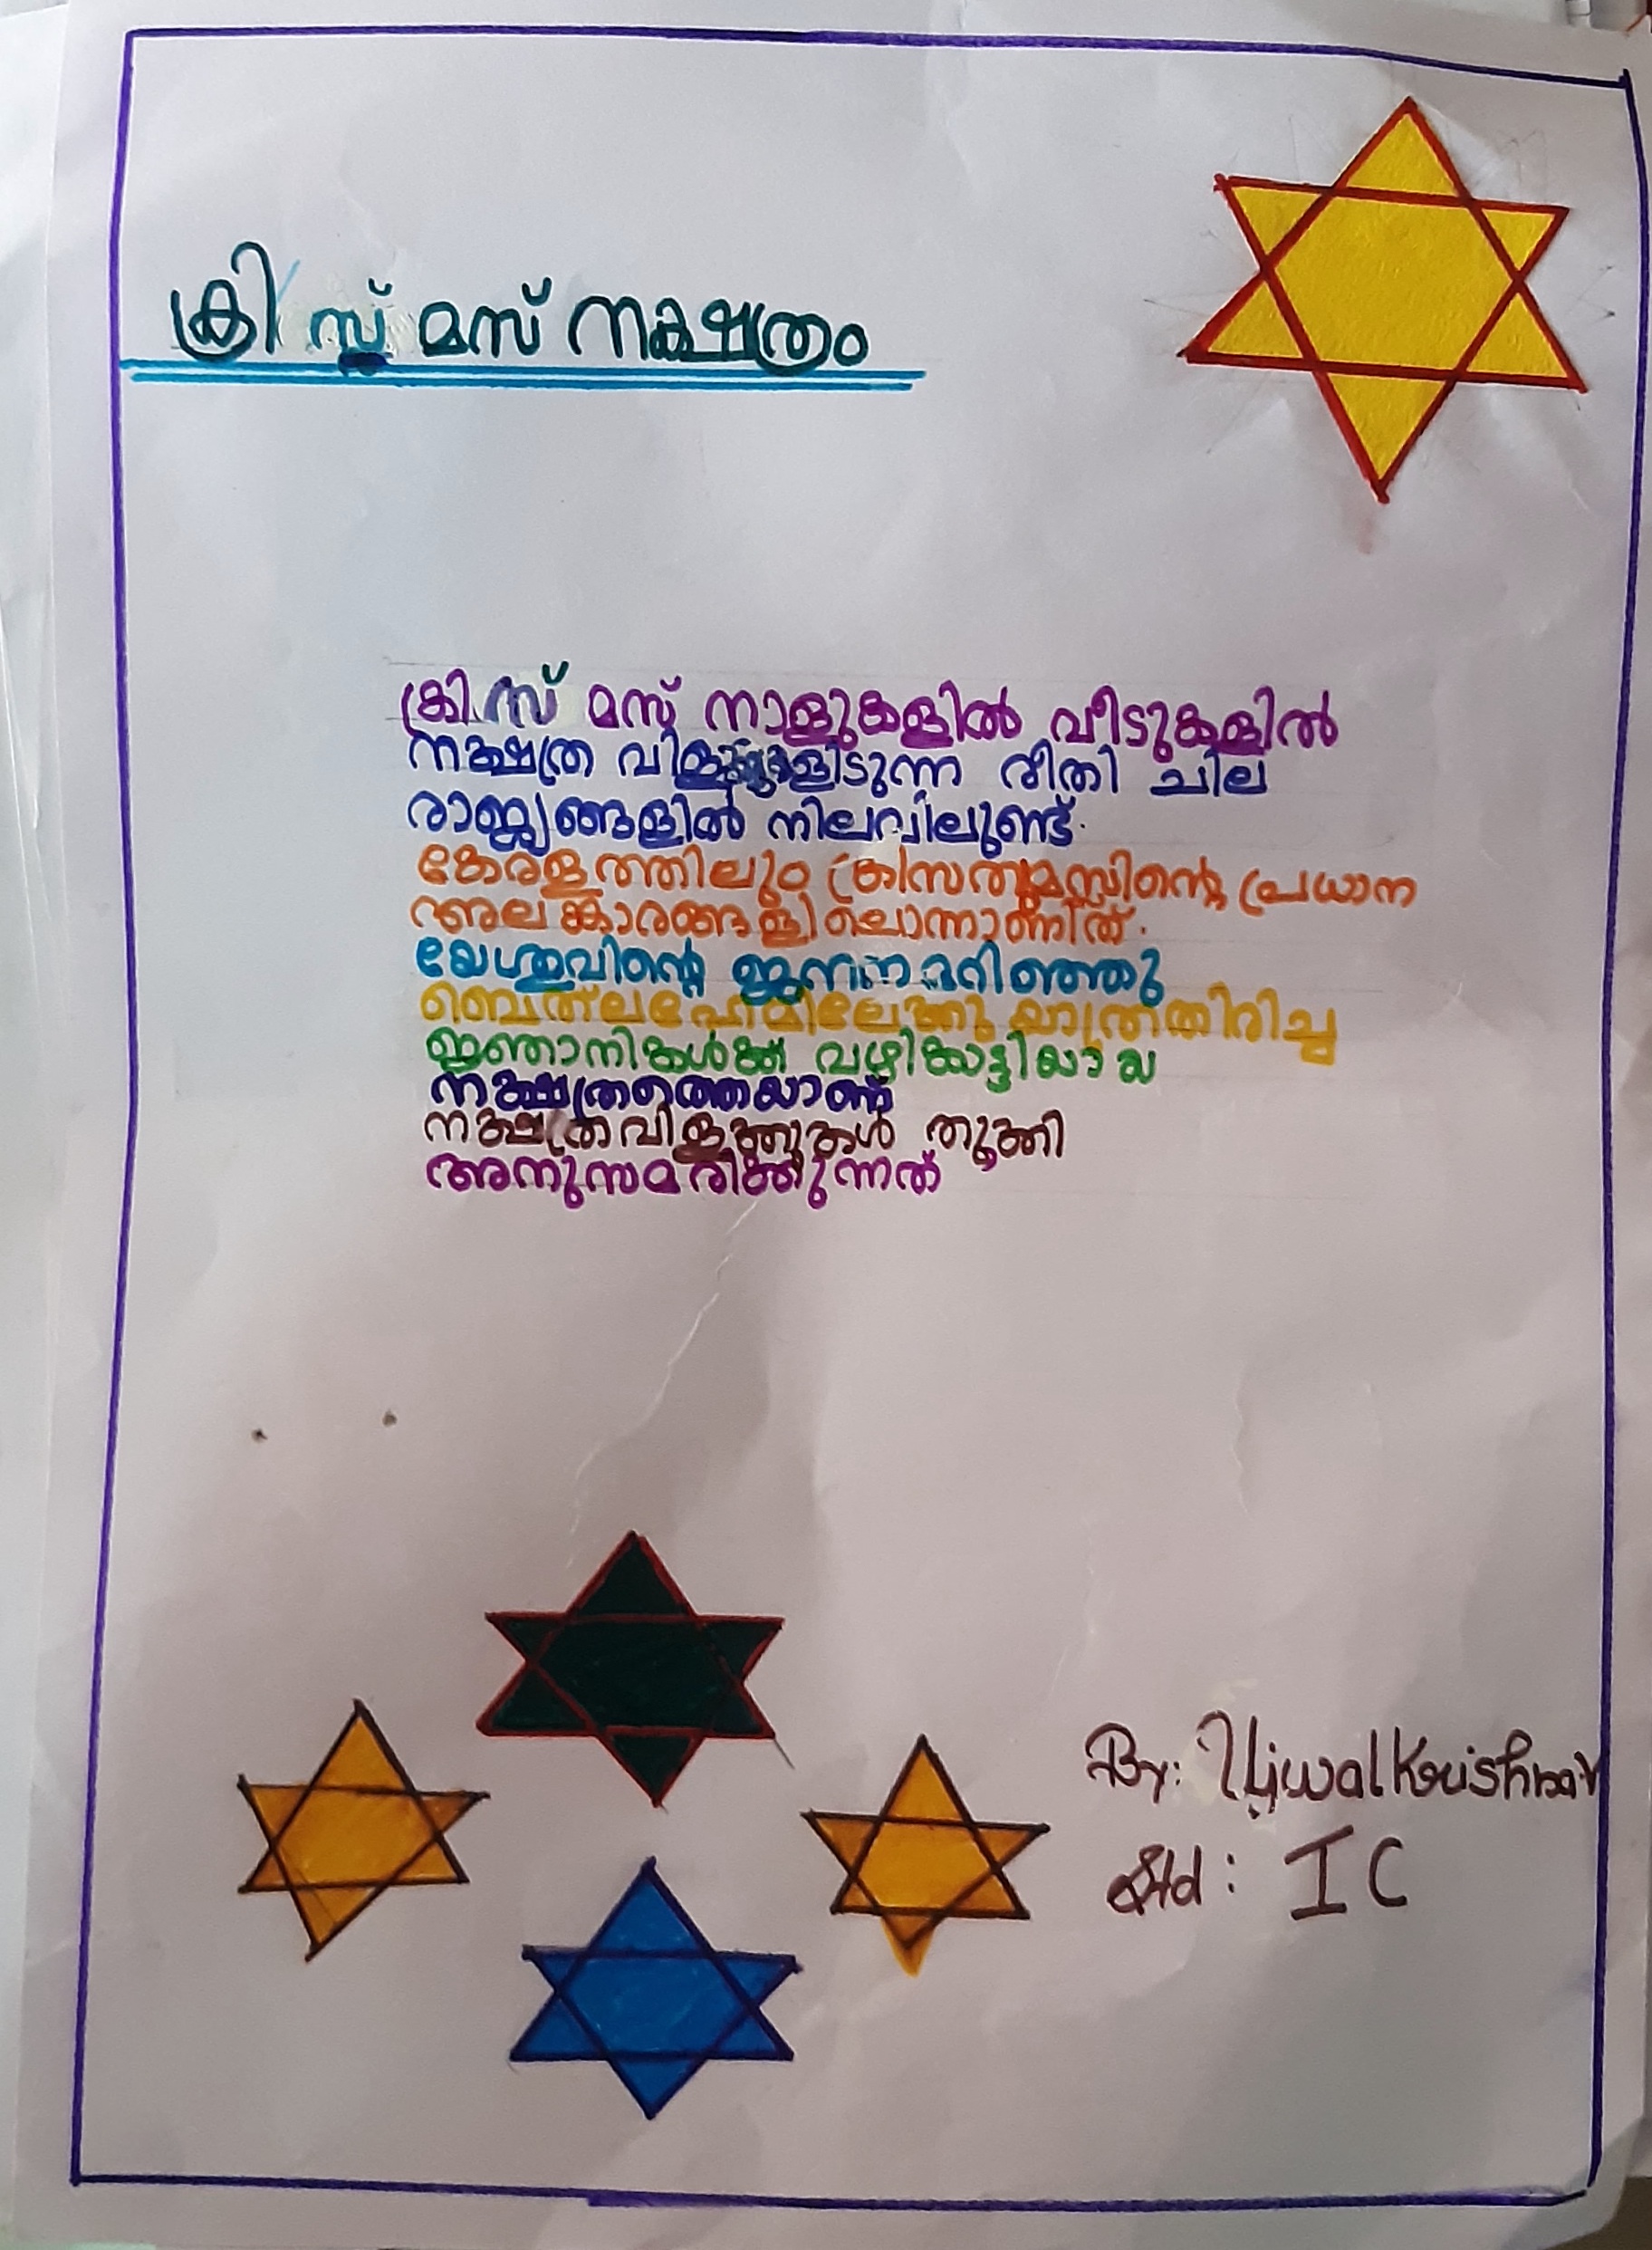 ക്രിസ്മസ് നക്ഷത്രം
ക്രിസ് മസ് നാളുകളിൽ വീടുകളിൽ
നക്ഷത്ര വിളക്കുകളിടുന്ന രീതി ചില
രാജ്യങ്ങളിൽ നിലവിലുണ്ട്.
കേരളത്തിലും പ്രധാന
അലങ്കാരങ്ങളിലൊന്നാണിത്.
യേശുവിന്റെ ജനനമറിഞ്ഞു
ബെത്‌ലഹേമിലേക്കു യാത്രതിരിച്ച
ജ്ഞാനികൾക്ക് വഴികാട്ടിയായ
നക്ഷത്രത്തെയാണ്
നക്ഷത്രവിളക്കുകൾ തൂക്കി
അനുസമരിക്കുന്നത്
By: Ujwal Krishnav
Std : I C